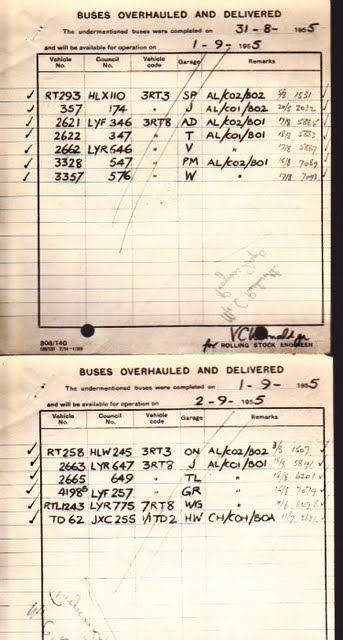 BUSES OVERHAULED AND DELIVERED
The undermentioned buses were completed on 31-8- 1955
and will be available for operation on 1-9- 1955
Vehicle No. Council No. Vehicle code Garage Remarks
RT293 HLX110 3RT3 SP AL/KO2/BO2 1531
357 174 " J AL/KO1/BO2 2022
2621 LYF 346 3RT8 AD AL/KO2/BO1 5885
2622 347 " T AL/KO1/BO1
2662 LYR646 " V " 7/8 5887
3328 547 " PM AL/KO2/BO1 7089
3357 576 " W " 7/8 7093
308/140
for ROLLING STOCK ENGINEER
BUSES OVERHAULED AND DELIVERED
The undermentioned buses were completed on 1-9- 1955
and will be available for operation on 2-9- 1955
Vehicle No. Council No. Vehicle code Garage Remarks
RT258 HLW245 3RT3 ON AL/KO2/BO2 1507
2663 LYR647 3RT8 J AL/KO1/BO1 5891
2665 649 " TL " 6201
4198 LYF257 " GR " 7079
RTL1243 LYR775 7RT8 WG "
TD 62 JXC255 1/1TD2 HW CH/COH/BOA